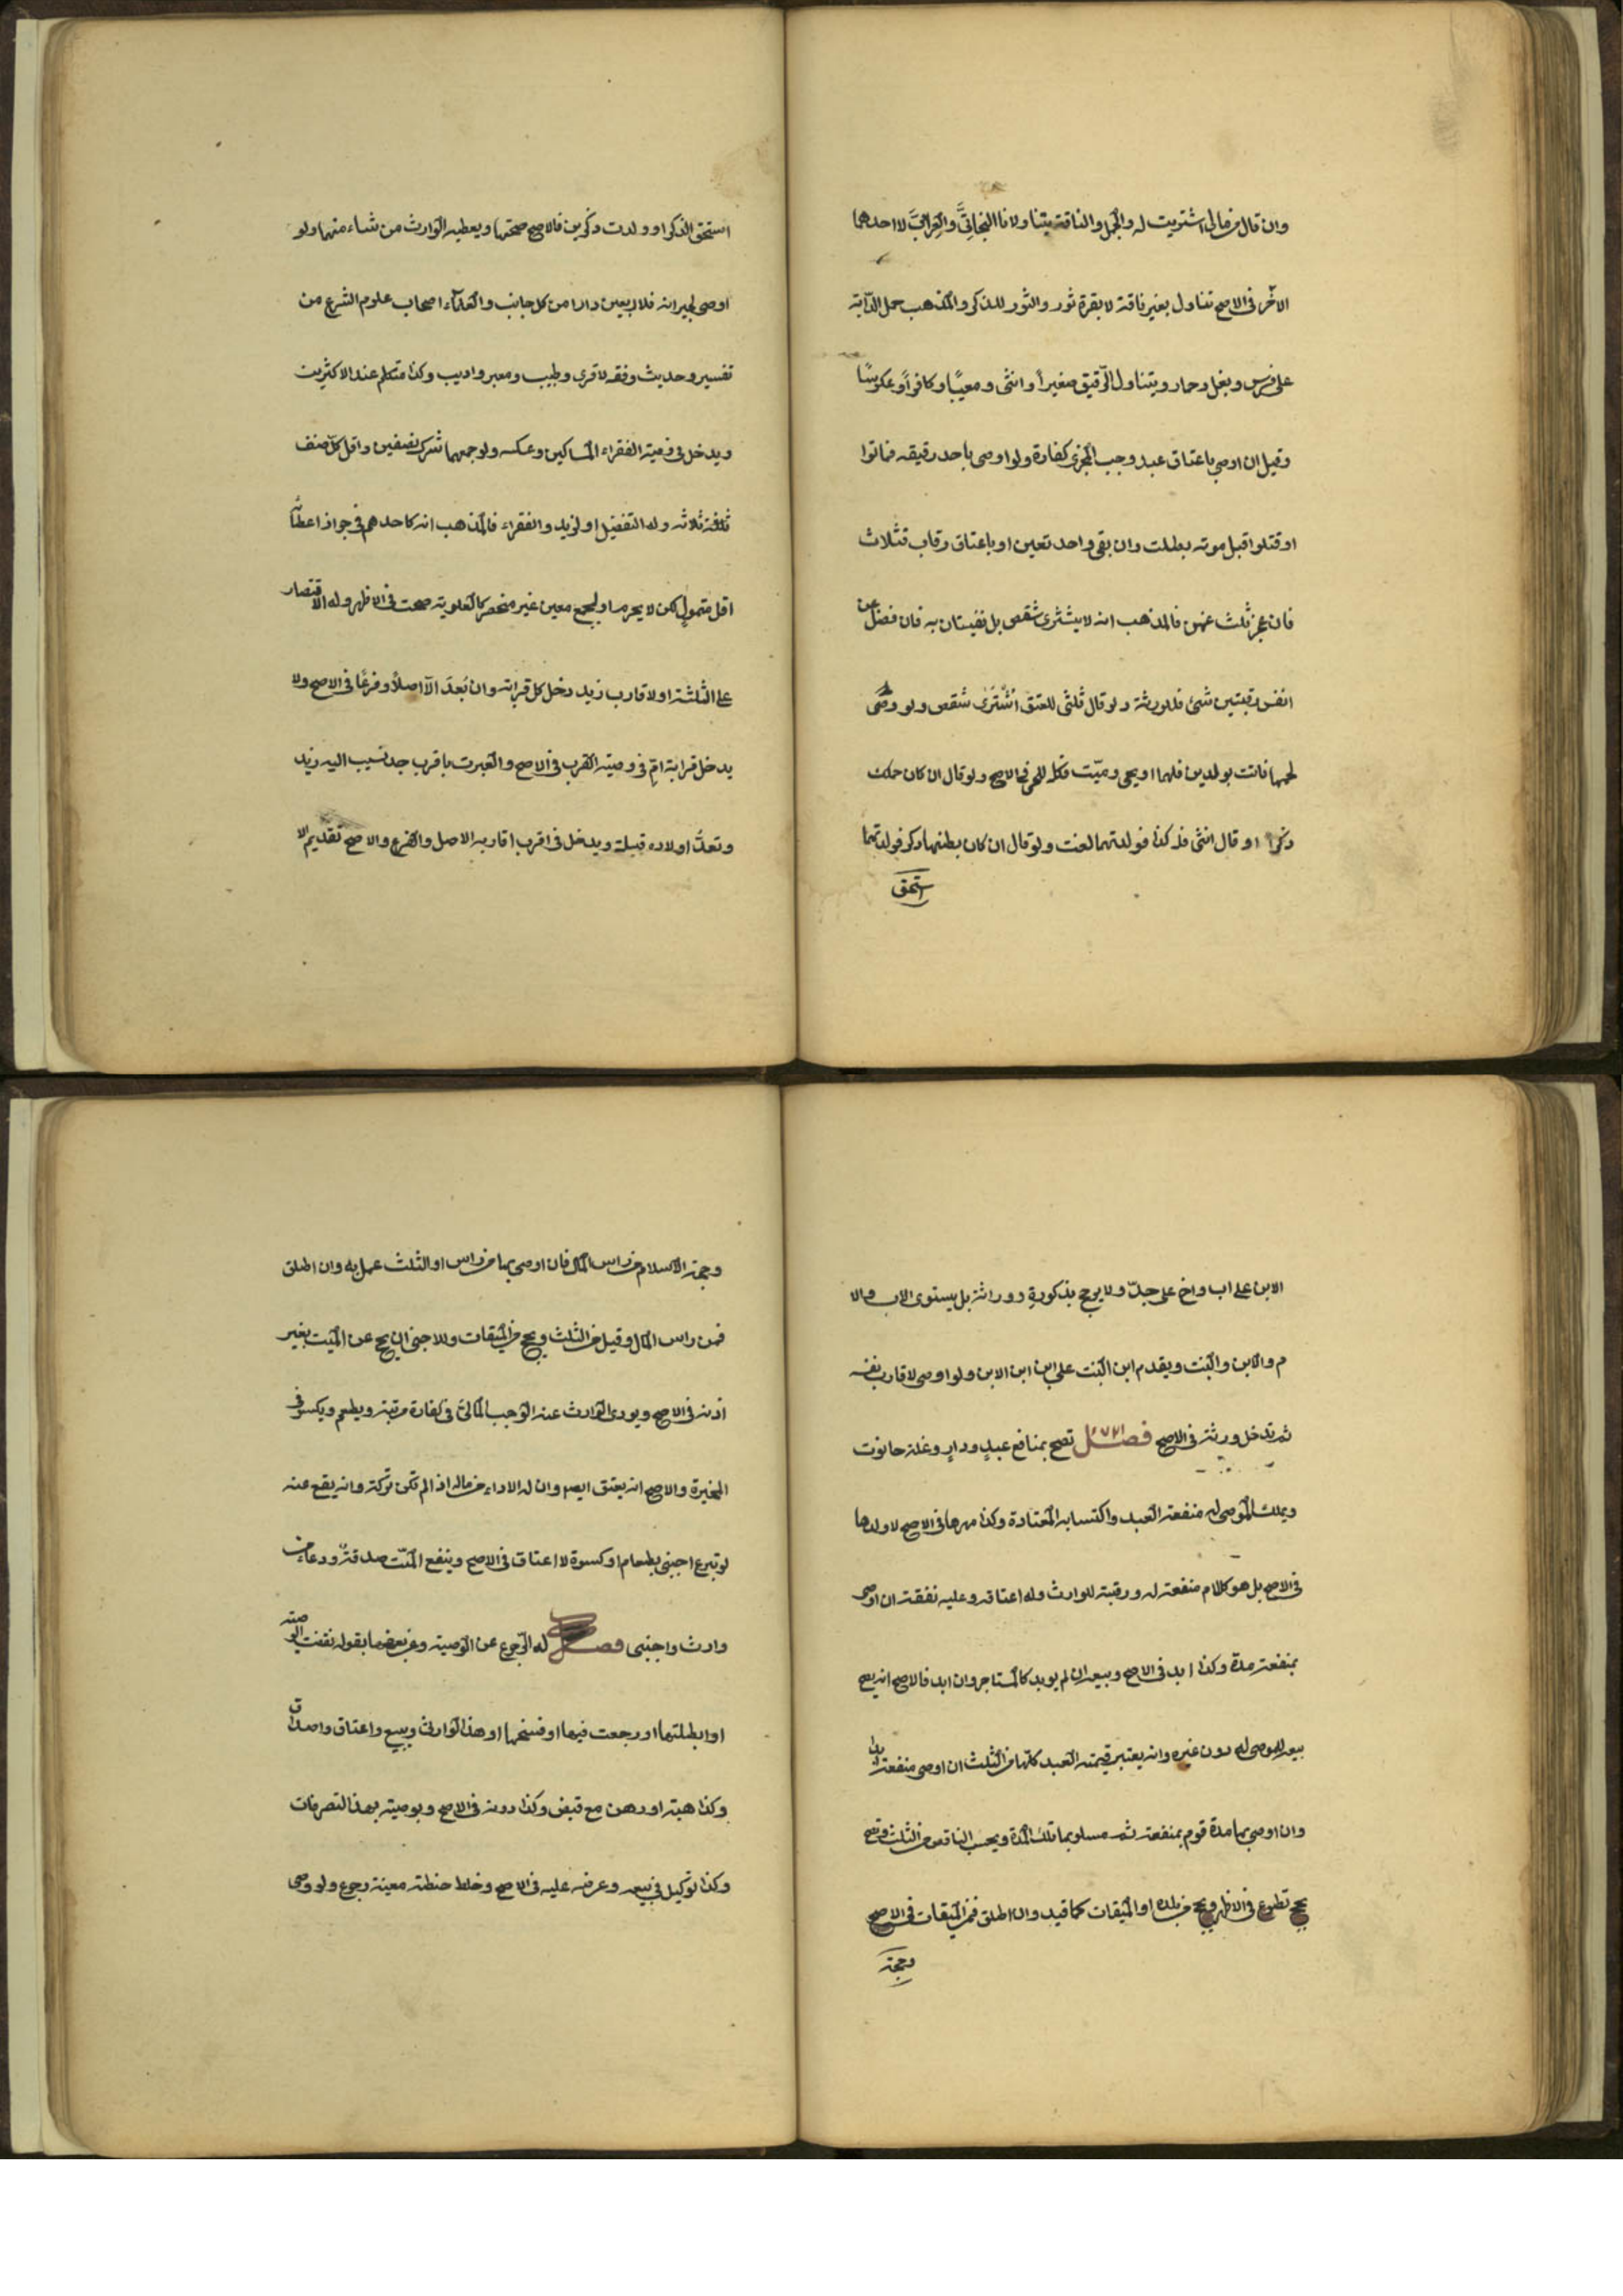 وان قال من مالي اشتريت له والجمل والناقة يتناولانا البخاتيَّ والعرابيَّ لا احدهما
الآخر في الاصح تناول بعير ناقة لا بقرة ثور والثور للذكر والمذهب حمل الدّابة
على فرس وبغل وحمار ويتناول الرّقيق صغيراً وانثى ومعيبًا وكافراً وعكوسًا
وقيل ان اوصى باعتاق عبد وجب المجزى كفارة ولو اوصى باحد رقيقه فماتوا
او قتلوا قبل موته بطلت وان بقى واحد تعين او باعتاق رقاب فثلاث
فان عجز ثلث عنهن فالمذهب انه لا يشترى شقص بل نفيستان به فان فضل عن
انفس رقبتين شئ فللورثة ولو قال ثلثى للعتق اُشْتُرَى شقص ولو وصّى
لحملها فاتت بولدين فلهما او بحى وميّت فكله للحى في الاصح ولو قال ان كان حملك
ذكرا او قال انثى فله كذا فولدتهما لغت ولو قال ان كان ببطنها ذكر فولدتهما
استحق
استحق الذكر او ولدت ذكرين فالاصح صحتها ويعطيه الوارث من شاء منهما ولو
اوصى لجيرانه فلاربعين دارا من كل جانب والعلمآء اصحاب علوم الشرع من
تفسير وحديث وفقه لا قرى وطبيب ومعبر واديب وكذا متكلم عند الاكثرين
ويدخل في وصية الفقراء المساكين وعكسه ولو جمعهما شرك نصفين واقل كلّ صنف
ثلثة ثلاثه وله التفضيل او لزيد والفقراء فالمذهب انه كاحدهم في جواز اعطآء
اقل متمولٍ لكن لا يحرم او لجمع معين غير منحصر كالعلوية صحت في الاظهر وله الاقتصار
على الثلثة او لاقارب زيد دخل كل قرابته وان بَعُدَ الّا اصلاً وفرعًا في الاصح ولا
يدخل قرابة امّ في وصية القرب في الاصح والعبرت باقرب جد نسيب اليه زيد
وتعدّ اولاده قبيلة ويدخل في اقرب اقاربه الاصل والفرع والاصح تقديم الا
الابن على اب واخ على جدّ ولا يرجح بذكورةٍ و وراثة بل يستوى الاب والا
م والابن والبنت ويقدم ابن البنت على ابن ابن الابن ولو اوصى لاقارب نفسه
لم تدخل ورثته في الاصح فصل تصح بمنافع عبدٍ ودارٍ وغلة حانوت
ويملك الموصى له منفعة العبد واكتسابه المعتادة وكذا مهرها في الاصح لا ولدها
في الاصح بل هو كالام منفعته له ورقبته للوارث وله اعتاقه وعليه نفقته ان اوصى
بمنفعته مدة وكذا ابد في الاصح وبيعه ان لم يوبد كالمستاجر وان ابد فالاصح انه يصح
بيعه للموصى له دون غيره وانه يعتبر قيمة العبد كلّها من الثلث ان اوصى منفعته ابدا
وان اوصى بها مدة قوم بمنفعته ثم مسلوبها تلك المدة ويحسب الناقص من الثلث وتصح
بحج تطوع في الاظهر ويحج من بلده او الميقات كما قيد وان اطلق فمن الميقات في الاصح
وحجة
وحجة الاسلام من راس المال فان اوصى بها من راس او الثلث عمل به وان اطلق
فمن راس المال وقيل من الثلث ويحج من الميقات وللاجنبى ان يحج عن الميت بغير
اذنه في الاصح ويودى الوارث عنه الواجب المالىّ في كفارة مرتبة ويطعم ويكسو في
المخيرة والاصح انه يعتق ايضا وان له الاداء من ماله اذا لم تكن تركة وانه يقع عنه
لو تبرع اجنبى بطعام او كسوة لا اعتاق في الاصح وينفع الميّت صدقةٌ ودعاء من
وارث واجنبى فصل له الرّجوع عن الوصية وعن بعضها بقوله نقضت الوصية
او ابطلتها او رجعت فيها او فسختها او هذا لوارثى وببيع واعتاق واصداق
وكذا هبة او رهن مع قبض وكذا دونه في الاصح وبوصية بهذا التصرفات
وكذا توكيل في بيعه وعرضه عليه في الاصح وخلط حنطة معينة رجوع ولو وصى